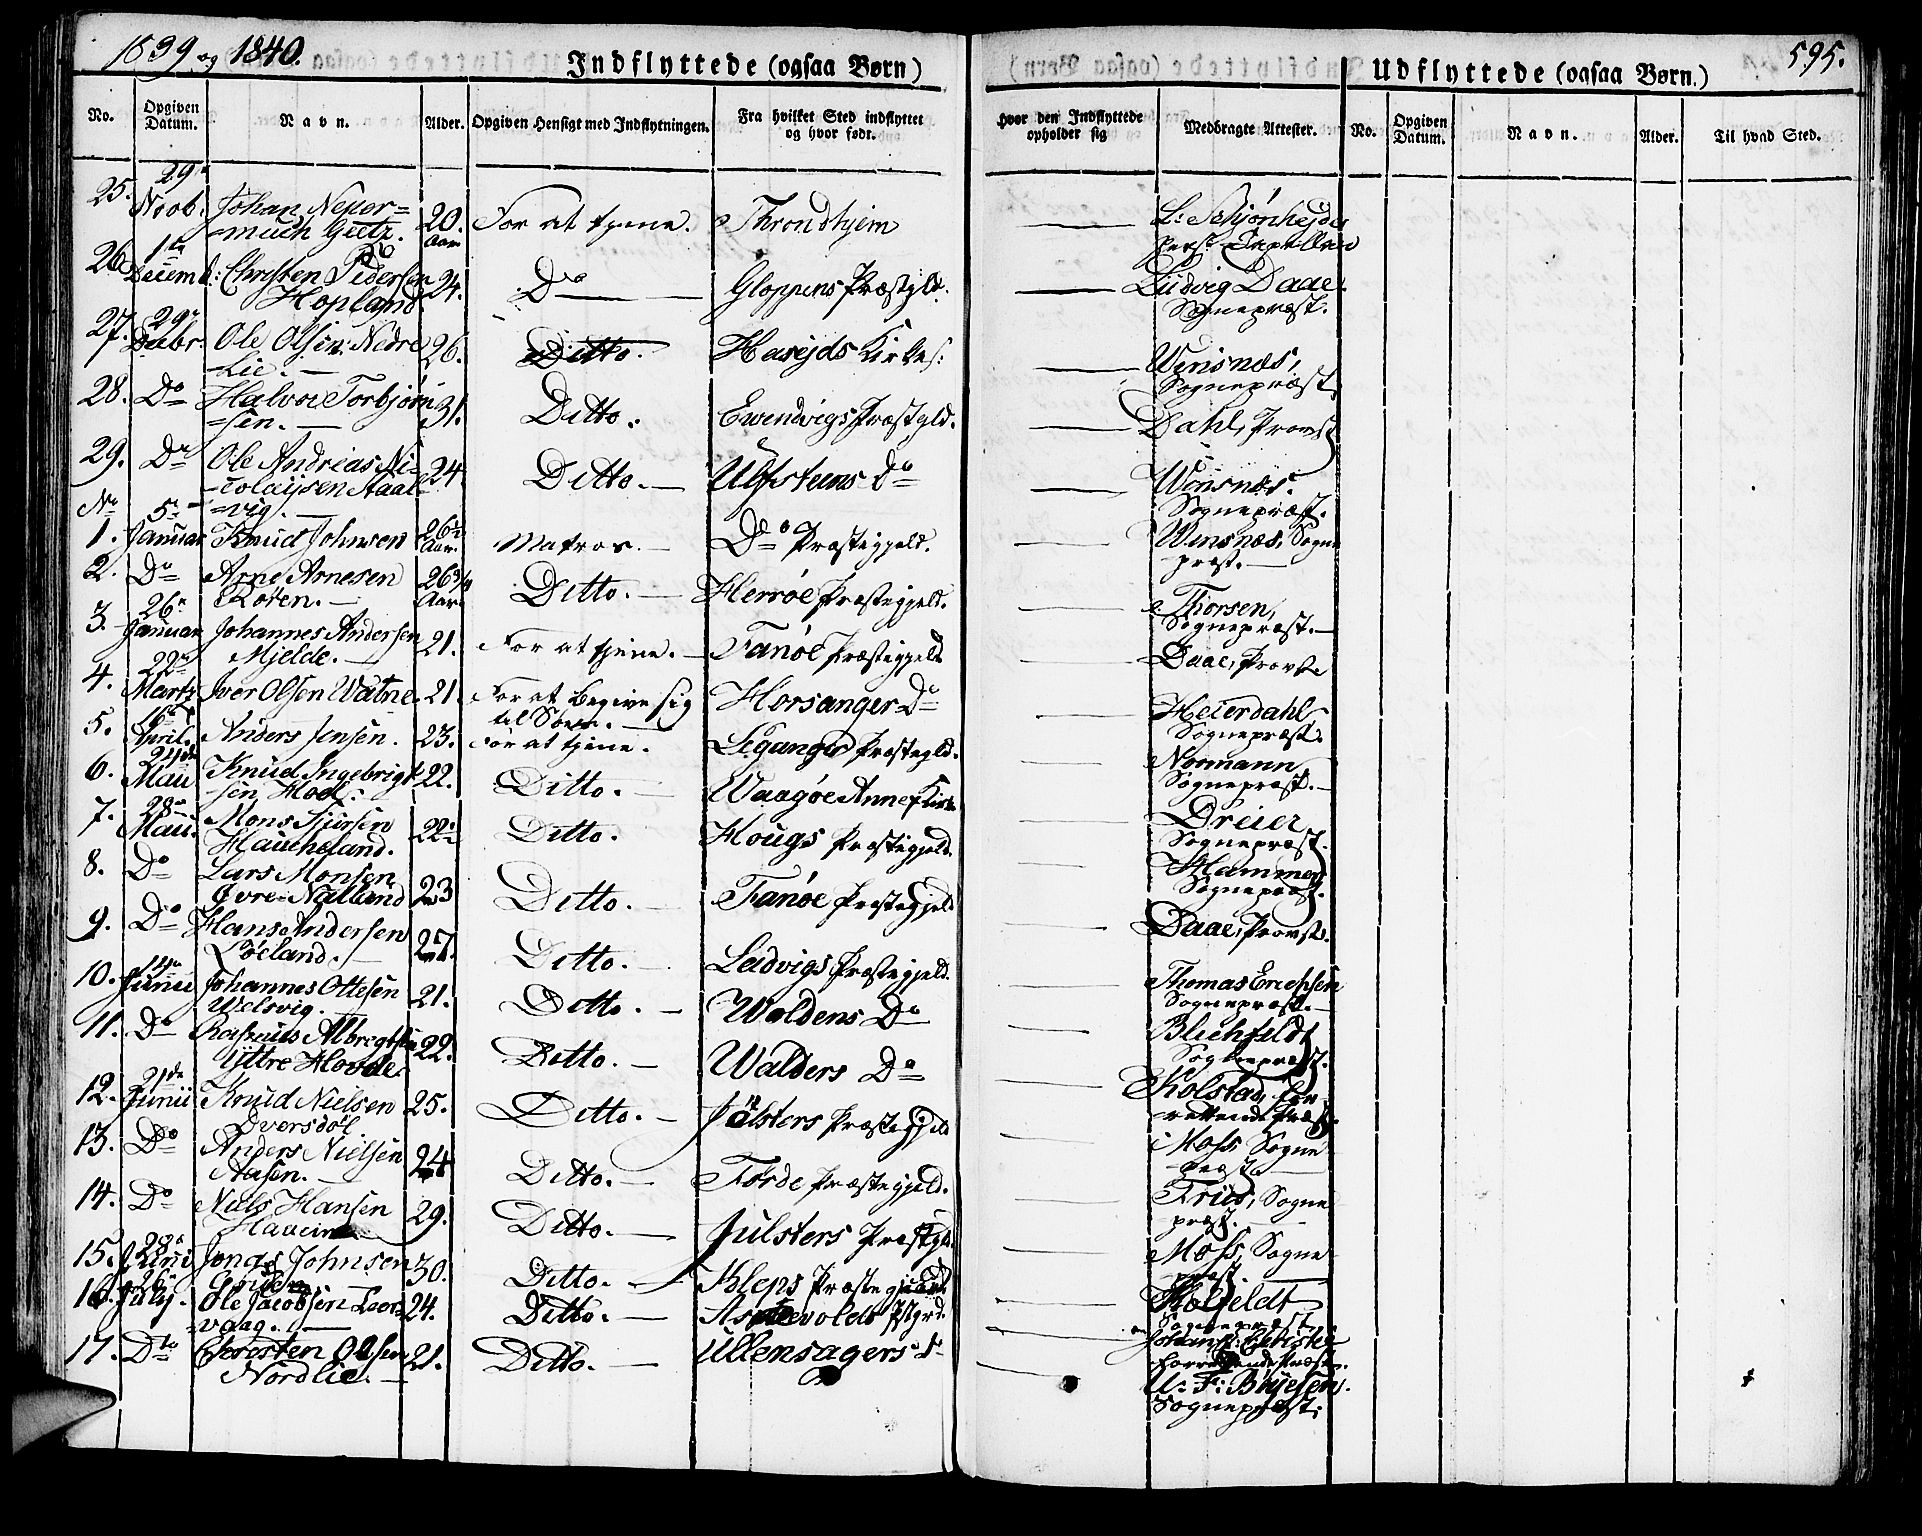 1839 og 1840.
Indflyttede (ogsaa Børn)
Udflyttede (ogsaa Børn.)
595.
No. Opgiven Datum. Navn. Alder. Opgiven Hensigt med Indflytningen. Fra hvilket Sted indflyttet og hvor født. Hvor den Indflyttede opholder sig Medbragte Attester. No. Opgiven Datum. Navn. Alder. Til hvad Sted.
25. 29 Novb. Johan Neper=
much Geetz. 20. Aar For at tjene. Throndhjem — L: Schjønheyder
pers: Capellan
26. 1te Decemb: Christen Pedersen
Hopland. 24. Do — Gloppens Præstgld. — Ludvig Daae
Sognepræst.
27. 29 Decbr. Ole Olsen Nedre
Lie. — 26. Ditto. Hareyds Kirkes: — Winsnæs,
Sognepræst
28. Do Halvor Torbjørn
=sen. — 31. Ditto. Ewendvigs Præstgld. — Dahl, Provst
29. Do Ole Andreas Ni-
colaysen Staal
=vig. — 24 Ditto. — Ulfsteens Do — Winsnæs.
Sognepræst.
No 1. 5 Januar Knud Johnsen 26½ Aar. Matros. — Do Præstegjeld. — Winsnæs, Sogne
præst. —
2. Do Arne Arnesen
Roten. — 26 3/4 Aar. Ditto. — Herrøe Præstegjeld. — Thorsen,
Sognepræst. —
3. 26 Januar Johannes Andersen
Mjelde. — 21. For at tjene. — Fanøe Præstegjeld — Daae, Provst
4. 22 Marts Iver Olsen Watne. 21. For at begive sig
til Søes. — Horsanger Do — Heierdahl
Sognepræst.
5. 16 April. Anders Jensen. 23. For at tjene. Leganger Præstegld. — Normann
Sognepræst. —
6. 21de Maii Knud Ingebrigt
sen Hoel. 22. Ditto. — Waagøe Annex Kirke — Dreier
Sognepræst.
7. 28 Maii. Mons Siursen
Haucheland. 22½ Ditto. Hougs Præstegjeld. — Hammer
Sognepræst.
8. Do Lars Monsen
Øvre-Natland 23 Ditto. — Fanøe Præstegjeld — Daae, Provst.
9. Do Hans Andersen
Løeland. — 27. Ditto. — Ladvigs Præstegjeld. — Thomas Erichsen
Sognepræst. —
10. 14 Junii Johannes Ottesen
Welsvig. 21. Ditto. — Woldens Do — Blichfeldt
Sognepræst.
11. Do Rasmus Albregtsen
Ÿttre Hovde. 22. Ditto. — Walders Do — Kolstad, for
rettende Præst
12. 21de Junii Knud Nielsen
Dversdøl 25. Ditto. — Jölsters Præstegjeld — Moss, Sogne
præst
13. Do Anders Nielsen
Aasen. — 24 Ditto. — Førde Præstegjeld. — Friis, Sogne
præst. —
14. Do Niels Hansen
29. Ditto. — Julsters Præstgld. — Moss, Sogne
præst.
15. 28 Junii Jonas Johnsen
30. Ditto. — Kleps Præstegjeld — Kolfeldt
Sognepræst,
16. 26 July. Ole Jacobsen Leer
vaag. — 24. Ditto. — Præstgrd. —
17. Do Christen Olsen
Nordlie. — 21. Ditto. — Ullensagers Do — U: F: Bøyesen.
Sognepræst;